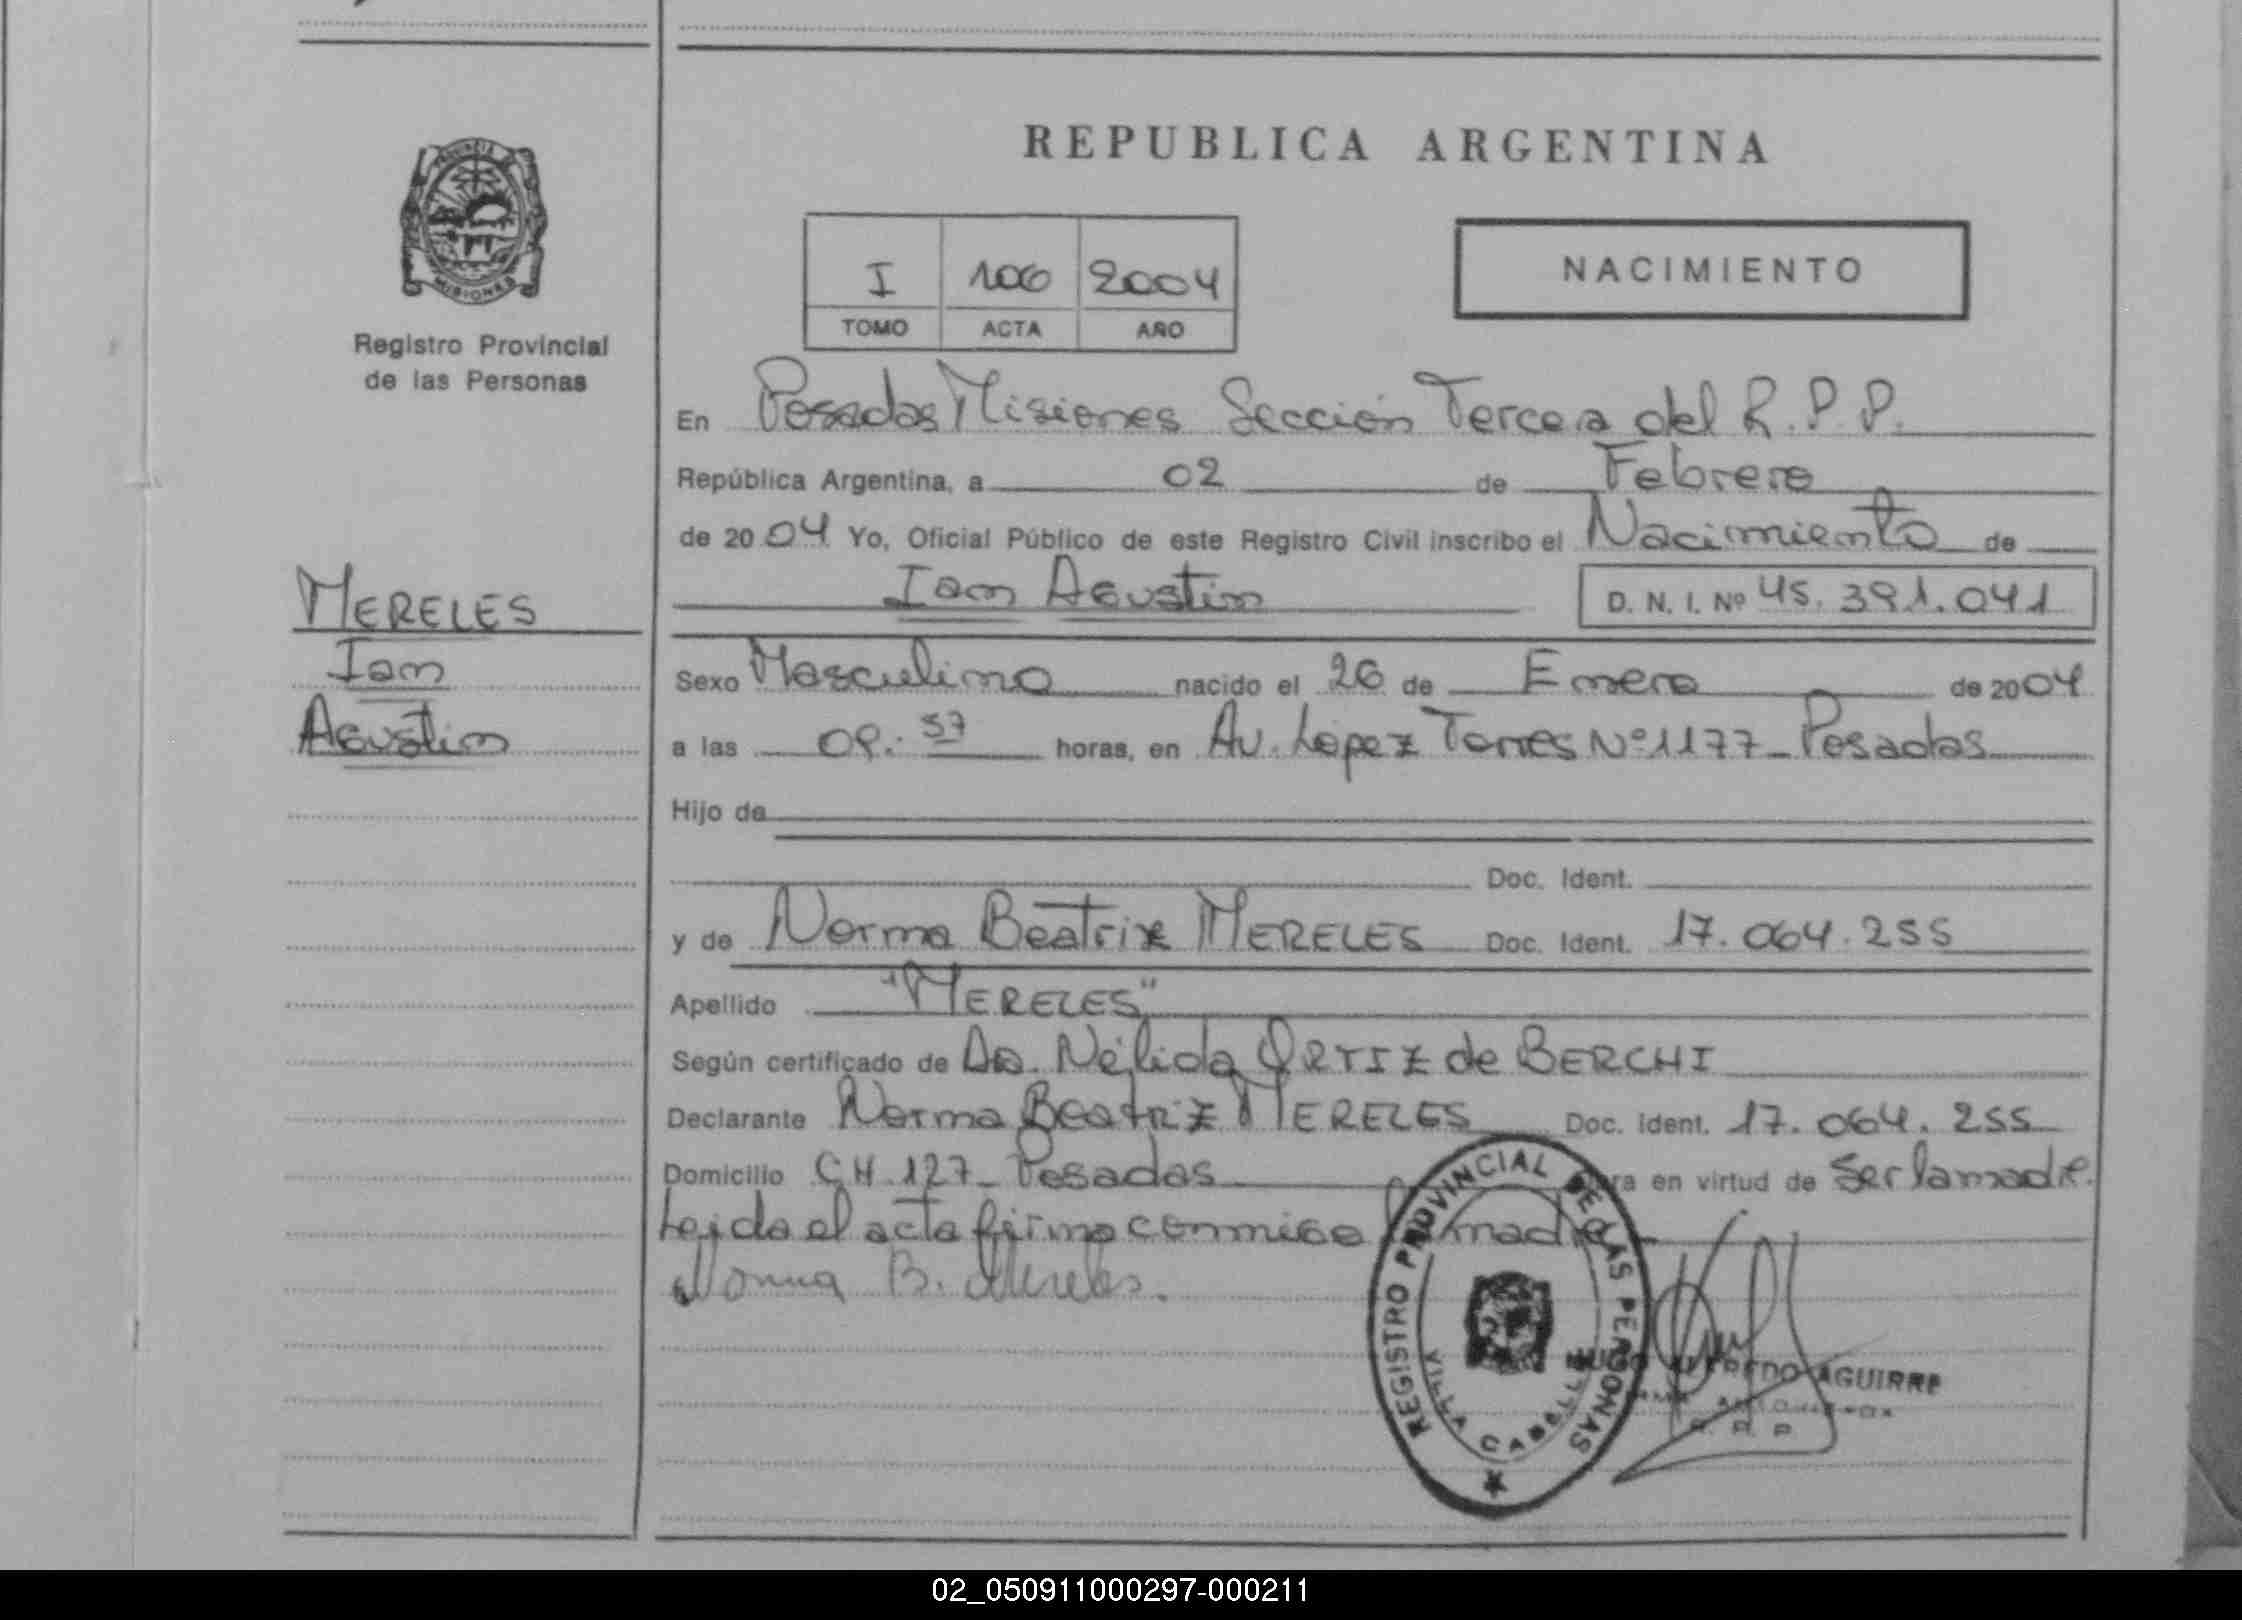 REPUBLICA ARGENTINA
PROVINCIA DE MISIONES
Registro Provincial
de las Personas
I 106 2004
TOMO ACTA AÑO
NACIMIENTO
En Posadas Misiones Sección Tercera del R.P.P.
República Argentina, a 02 de Febrero
de 2004 Yo, Oficial Público de este Registro Civil inscribo el Nacimiento de
Ian Agustin D. N. I. Nº 45.391.041
MERELES
Ian
Agustin
Sexo Masculino nacido el 26 de Enero de 2004
a las 09:37 horas, en Av. Lopez Torres Nº 1177 - Posadas
Hijo de
Doc. Ident.
y de Norma Beatriz MERELES Doc. Ident. 17.064.255
Apellido "MERELES"
Según certificado de Da. Nélida ORTIZ de BERCHI
Declarante Norma Beatriz MERELES Doc. Ident. 17.064.255
Domicilio CH 127 - Posadas en virtud de ser la madre.
Leida el acta firma conmigo la madre
Norma B. Mereles.
REGISTRO PROVINCIAL DE LAS PERSONAS
VILLA CABELLO
HUGO ALFREDO AGUIRRE
R. P. P.
02_050911000297-000211